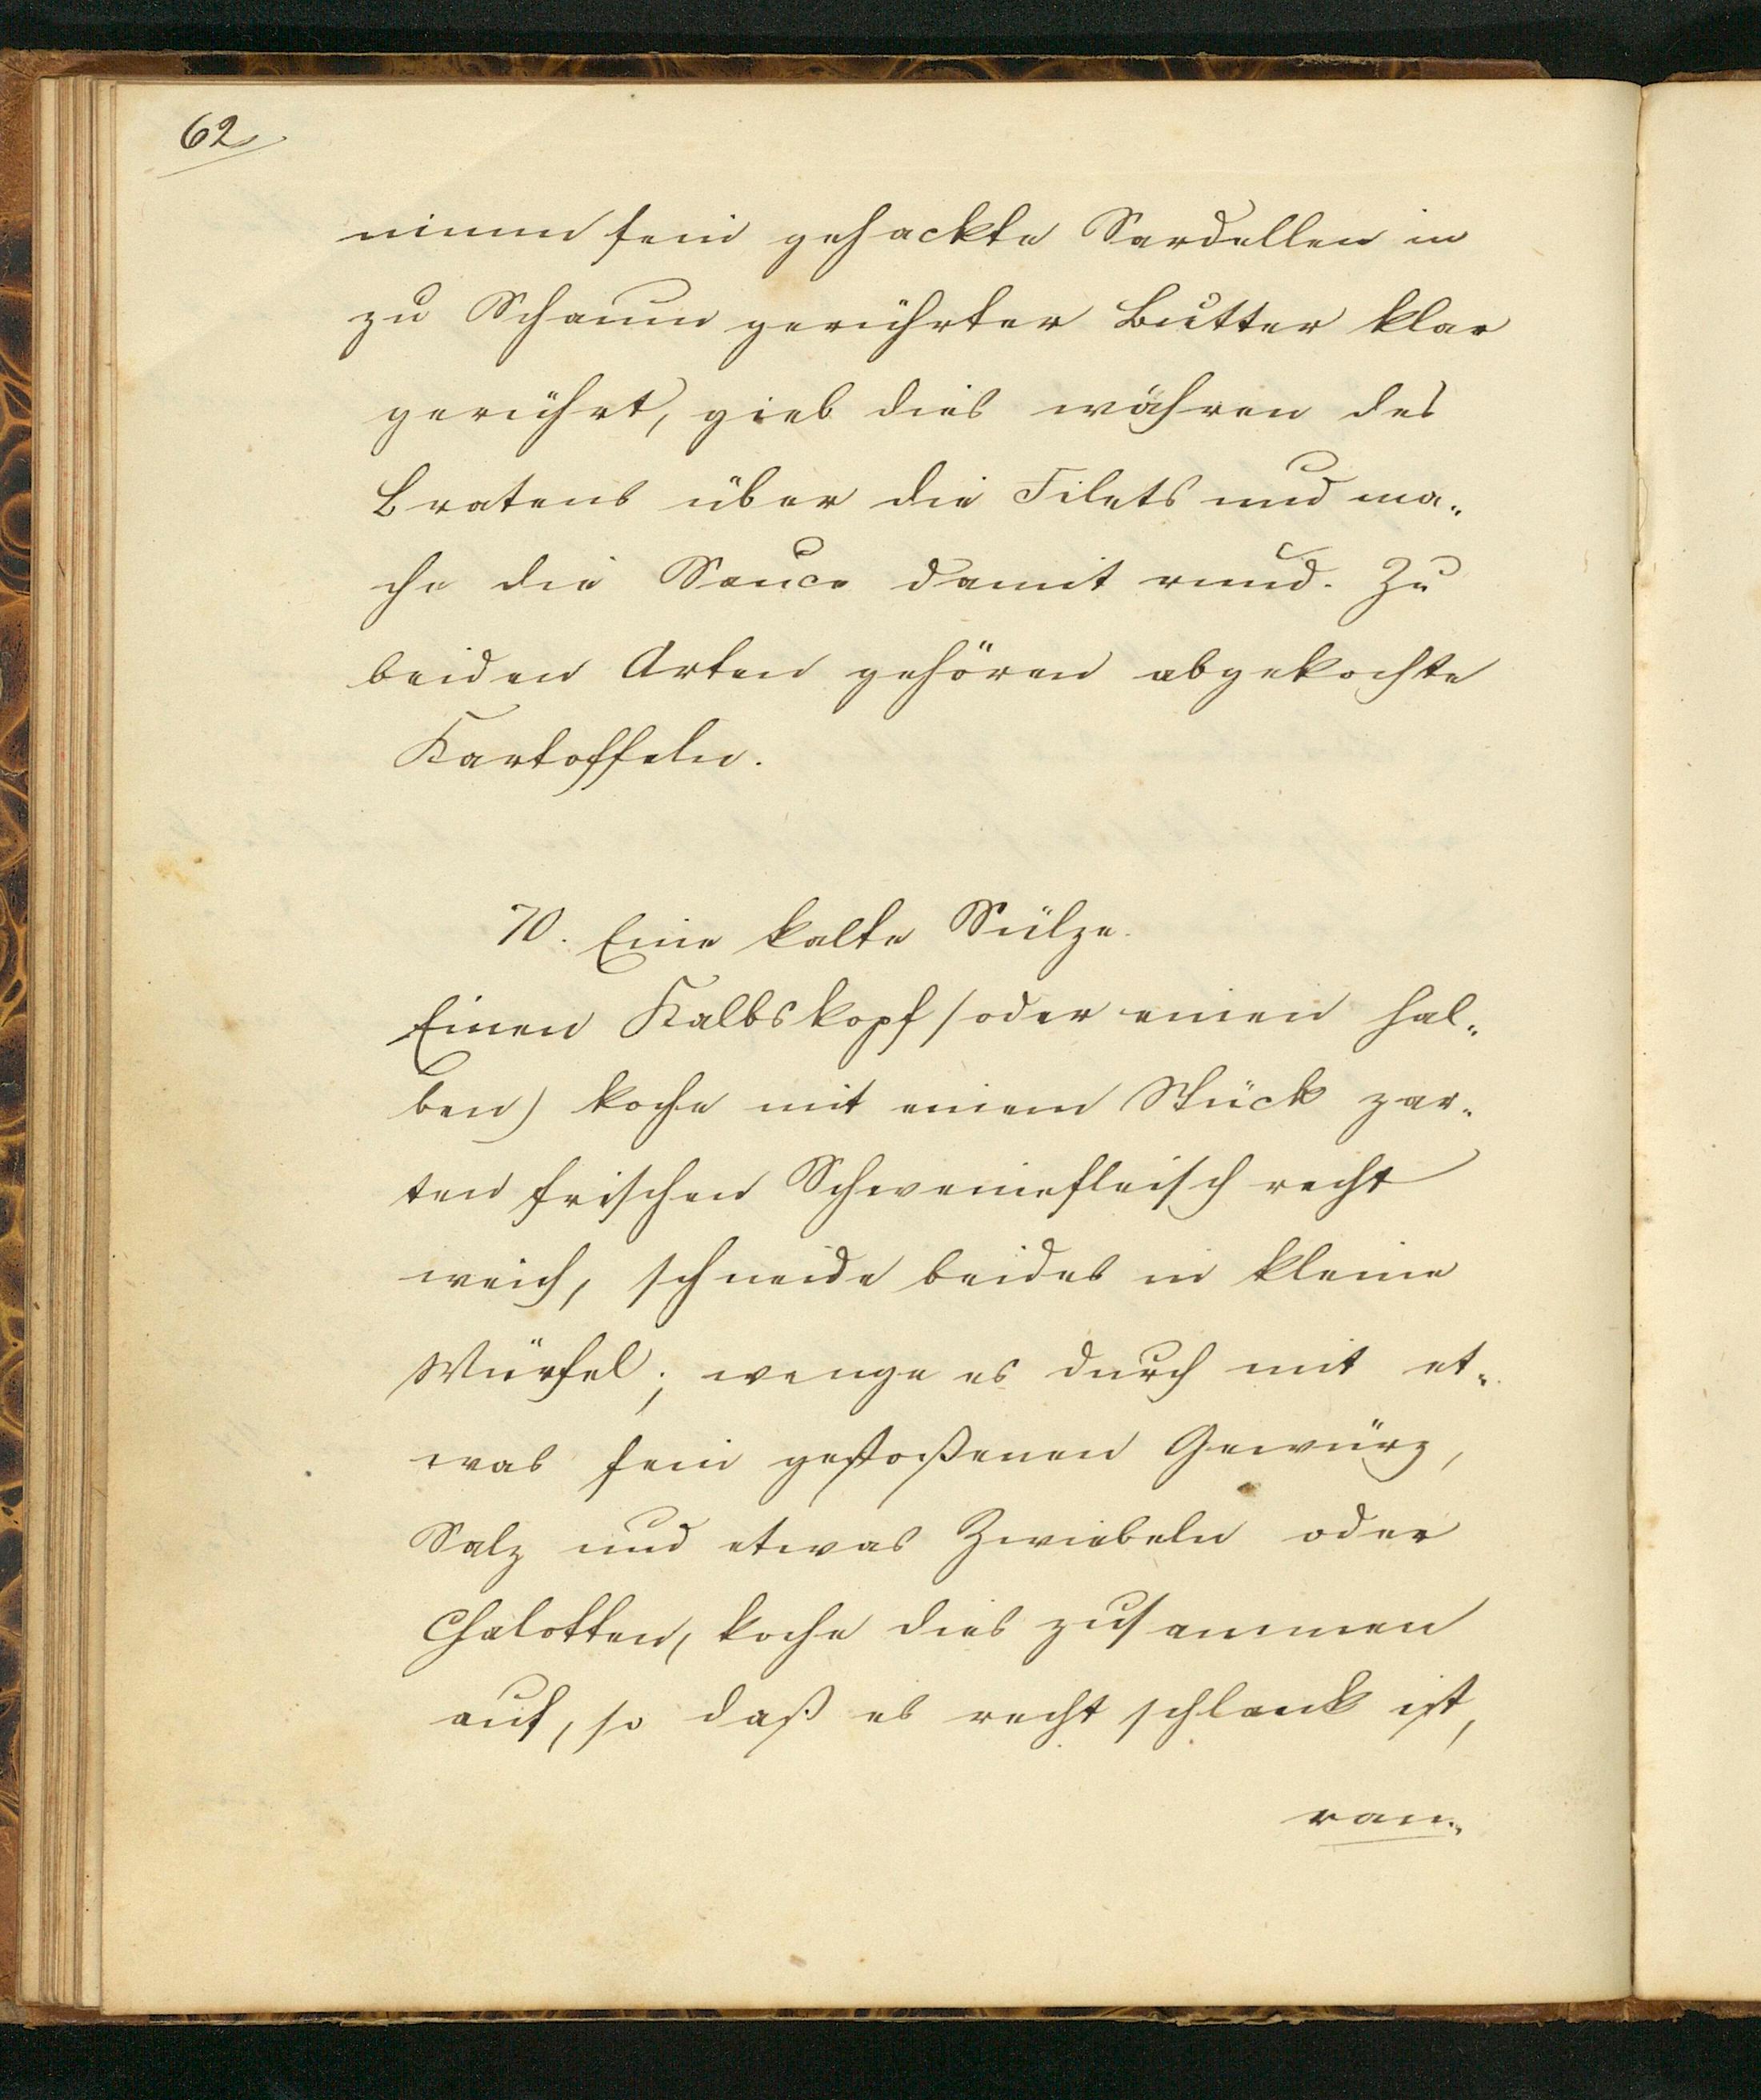 62
nimm fein gehackte Sardellen in
zu Schaum gerührter Butter klar
gerührt, gieb dies währen des
Bratens über die Filets und ma„
che die Sauce damit rund. Zu
beiden Arten gehören abgekochte
Kartoffeln.
70. Eine kalte Sülze.
Einen Kalbskopf /oder einen hal„
ben) koche mit einem Stück zar„
ten frischen Schweinefleisch recht
weich, schneide beides in kleine
Würfel; menge es durch mit et„
was fein gestoßenen Gewürz,
Salz und etwas Zwiebeln oder
Chalotten, koche dies zusammen
auf, so daß es recht schlank ist,
ran„